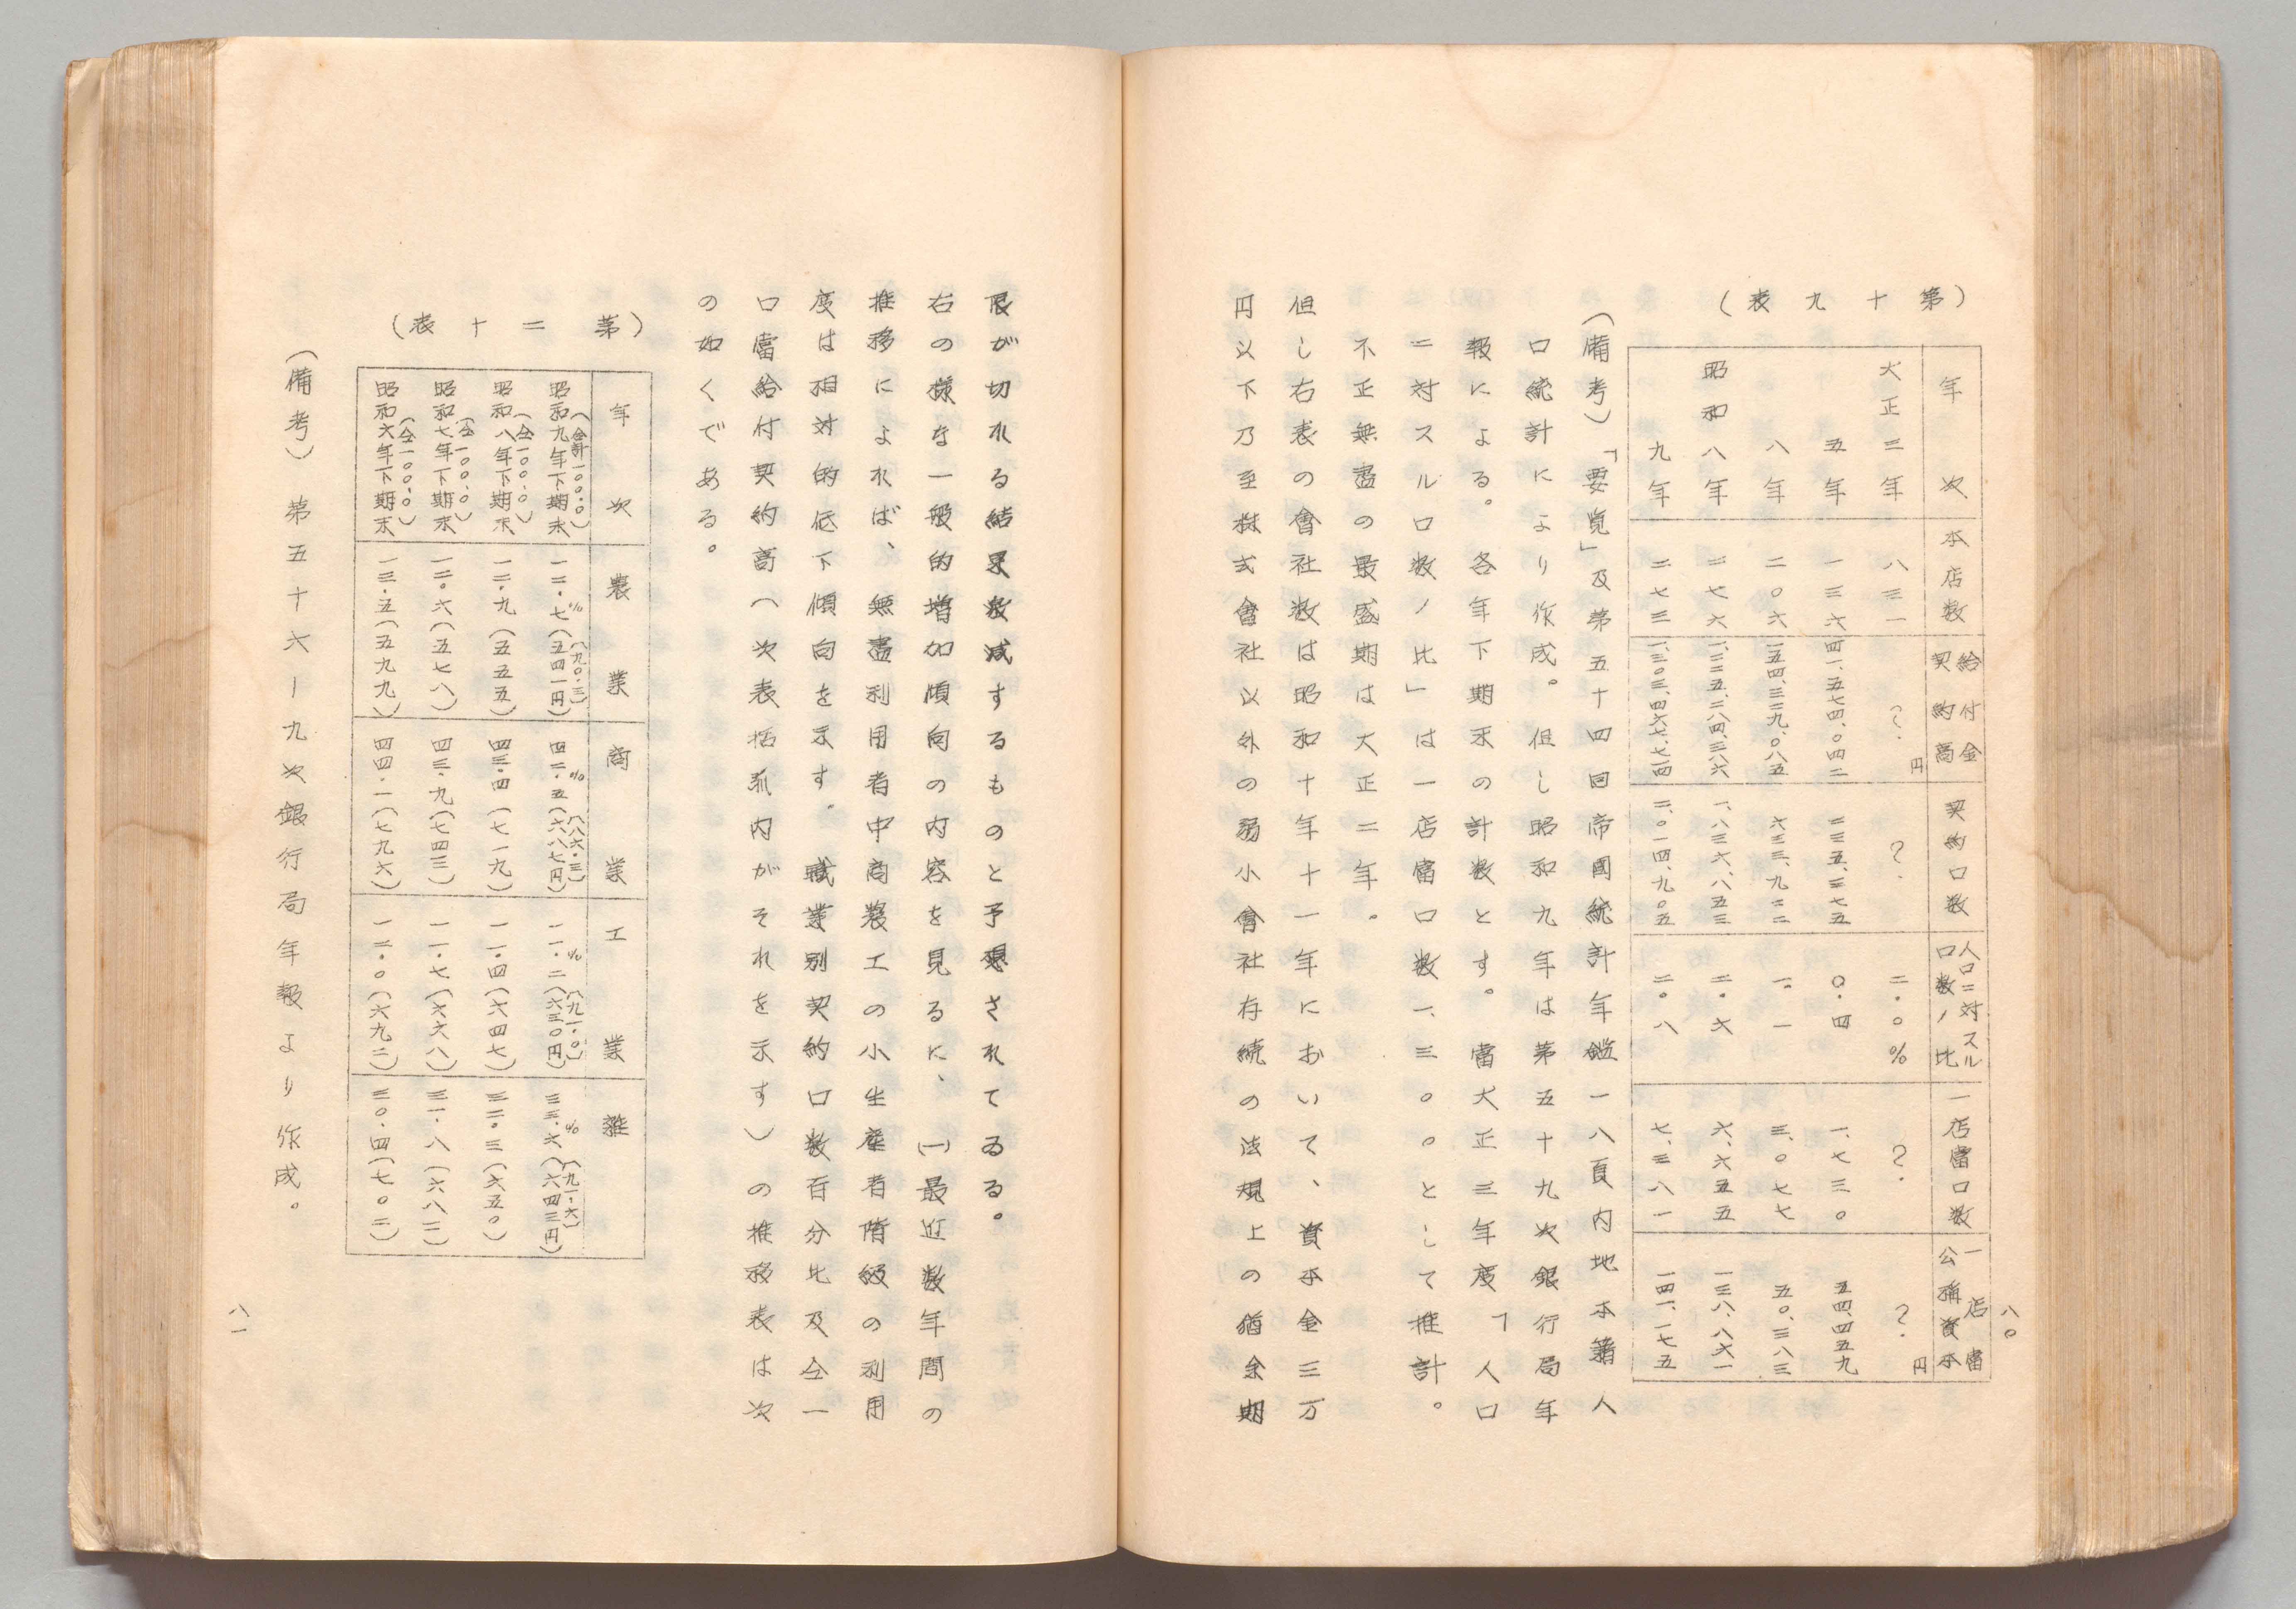 八〇
（第十九表）
年次 本店数 給付金契約高 契約口数 人口ニ対スル口数ノ比 一店當口数 一店當公称資本
大正三年 八三一 ？円 ？ 二・〇% ？ ？円
五年 一三六 四一、五七四、〇四二 二三五、三七五 〇・四 一、七三〇 五四、四五九
八年 二〇六 一五四、三三九、〇八五 六三三、九二二 一・一 三、〇七七 五〇、三八三
昭和八年 二七六 一、二二五、二八四、三八六 一、八三六、八五三 二・六 六、六五五 一三八、八六一
九年 二七三 一、三〇三、四六七、七一四 二、〇一四、九〇五 二・八 七、三八一 一四一、一七五
（備考）「要覧」及第五十四回帝國統計年鑑一八頁内地本籍人
口統計により作成。但し昭和九年は第五十九次銀行局年
報による。各年下期末の計数とす。當大正三年度「人口
ニ対スル口数ノ比」は一店當口数一、三〇〇として推計。
不正無盡の最盛期は大正二年。
但し右表の會社数は昭和十年十一年において、資本金三万
円以下乃至株式會社以外の弱小會社存続の法規上の猶余期
限が切れる結果数減するものと予想されてゐる。
右の様な一般的増加傾向の内容を見るに、㈠最近数年間の
推移によれば、無盡利用者中商農工の小生産者階級の利用
度は相対的低下傾向を示す。職業別契約口数百分比及仝一
口當給付契約高（次表括弧内がそれを示す）の推移表は次
の如くである。
（第二十表）
年次 農業 商業 工業 雑
昭和九年下期末（合計一〇〇・〇） 一二・七%（五四一円）（九〇・三） 四二・五%（六八七円）（八六・三） 一一・二%（六三〇円）（九一・〇） 三三・六%（六四三円）（九一・六）
昭和八年下期末（仝一〇〇・〇） 一二・九（五五五） 四三・四（七一九） 一一・四（六四七） 三二・三（六五〇）
昭和七年下期末（仝一〇〇・〇） 一二・六（五七八） 四三・九（七四三） 一一・七（六六八） 三一・八（六八二）
昭和六年下期末（仝一〇〇・〇） 一三・五（五九九） 四四・一（七九六） 一二・〇（六九二） 三〇・四（七〇二）
（備考）第五十六—九次銀行局年報より作成。
八一